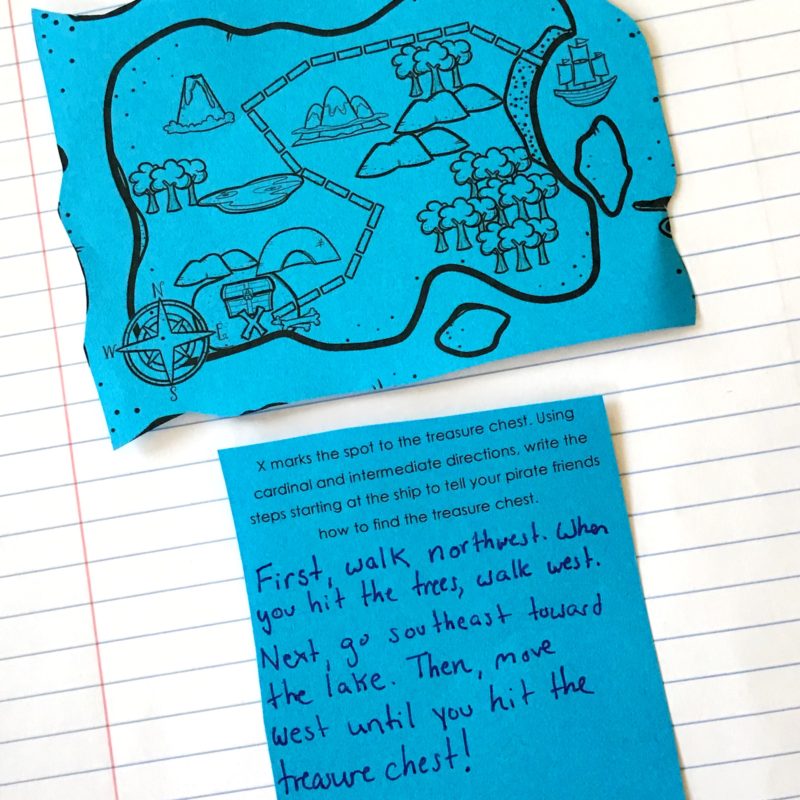 N
W
E
S
X
X marks the spot to the treasure chest. Using
cardinal and intermediate directions, write the
steps starting at the ship to tell your pirate friends
how to find the treasure chest.
First, walk northwest. When
you hit the trees, walk west.
Next, go southeast toward
the lake. Then, move
west until you hit the
treasure chest!